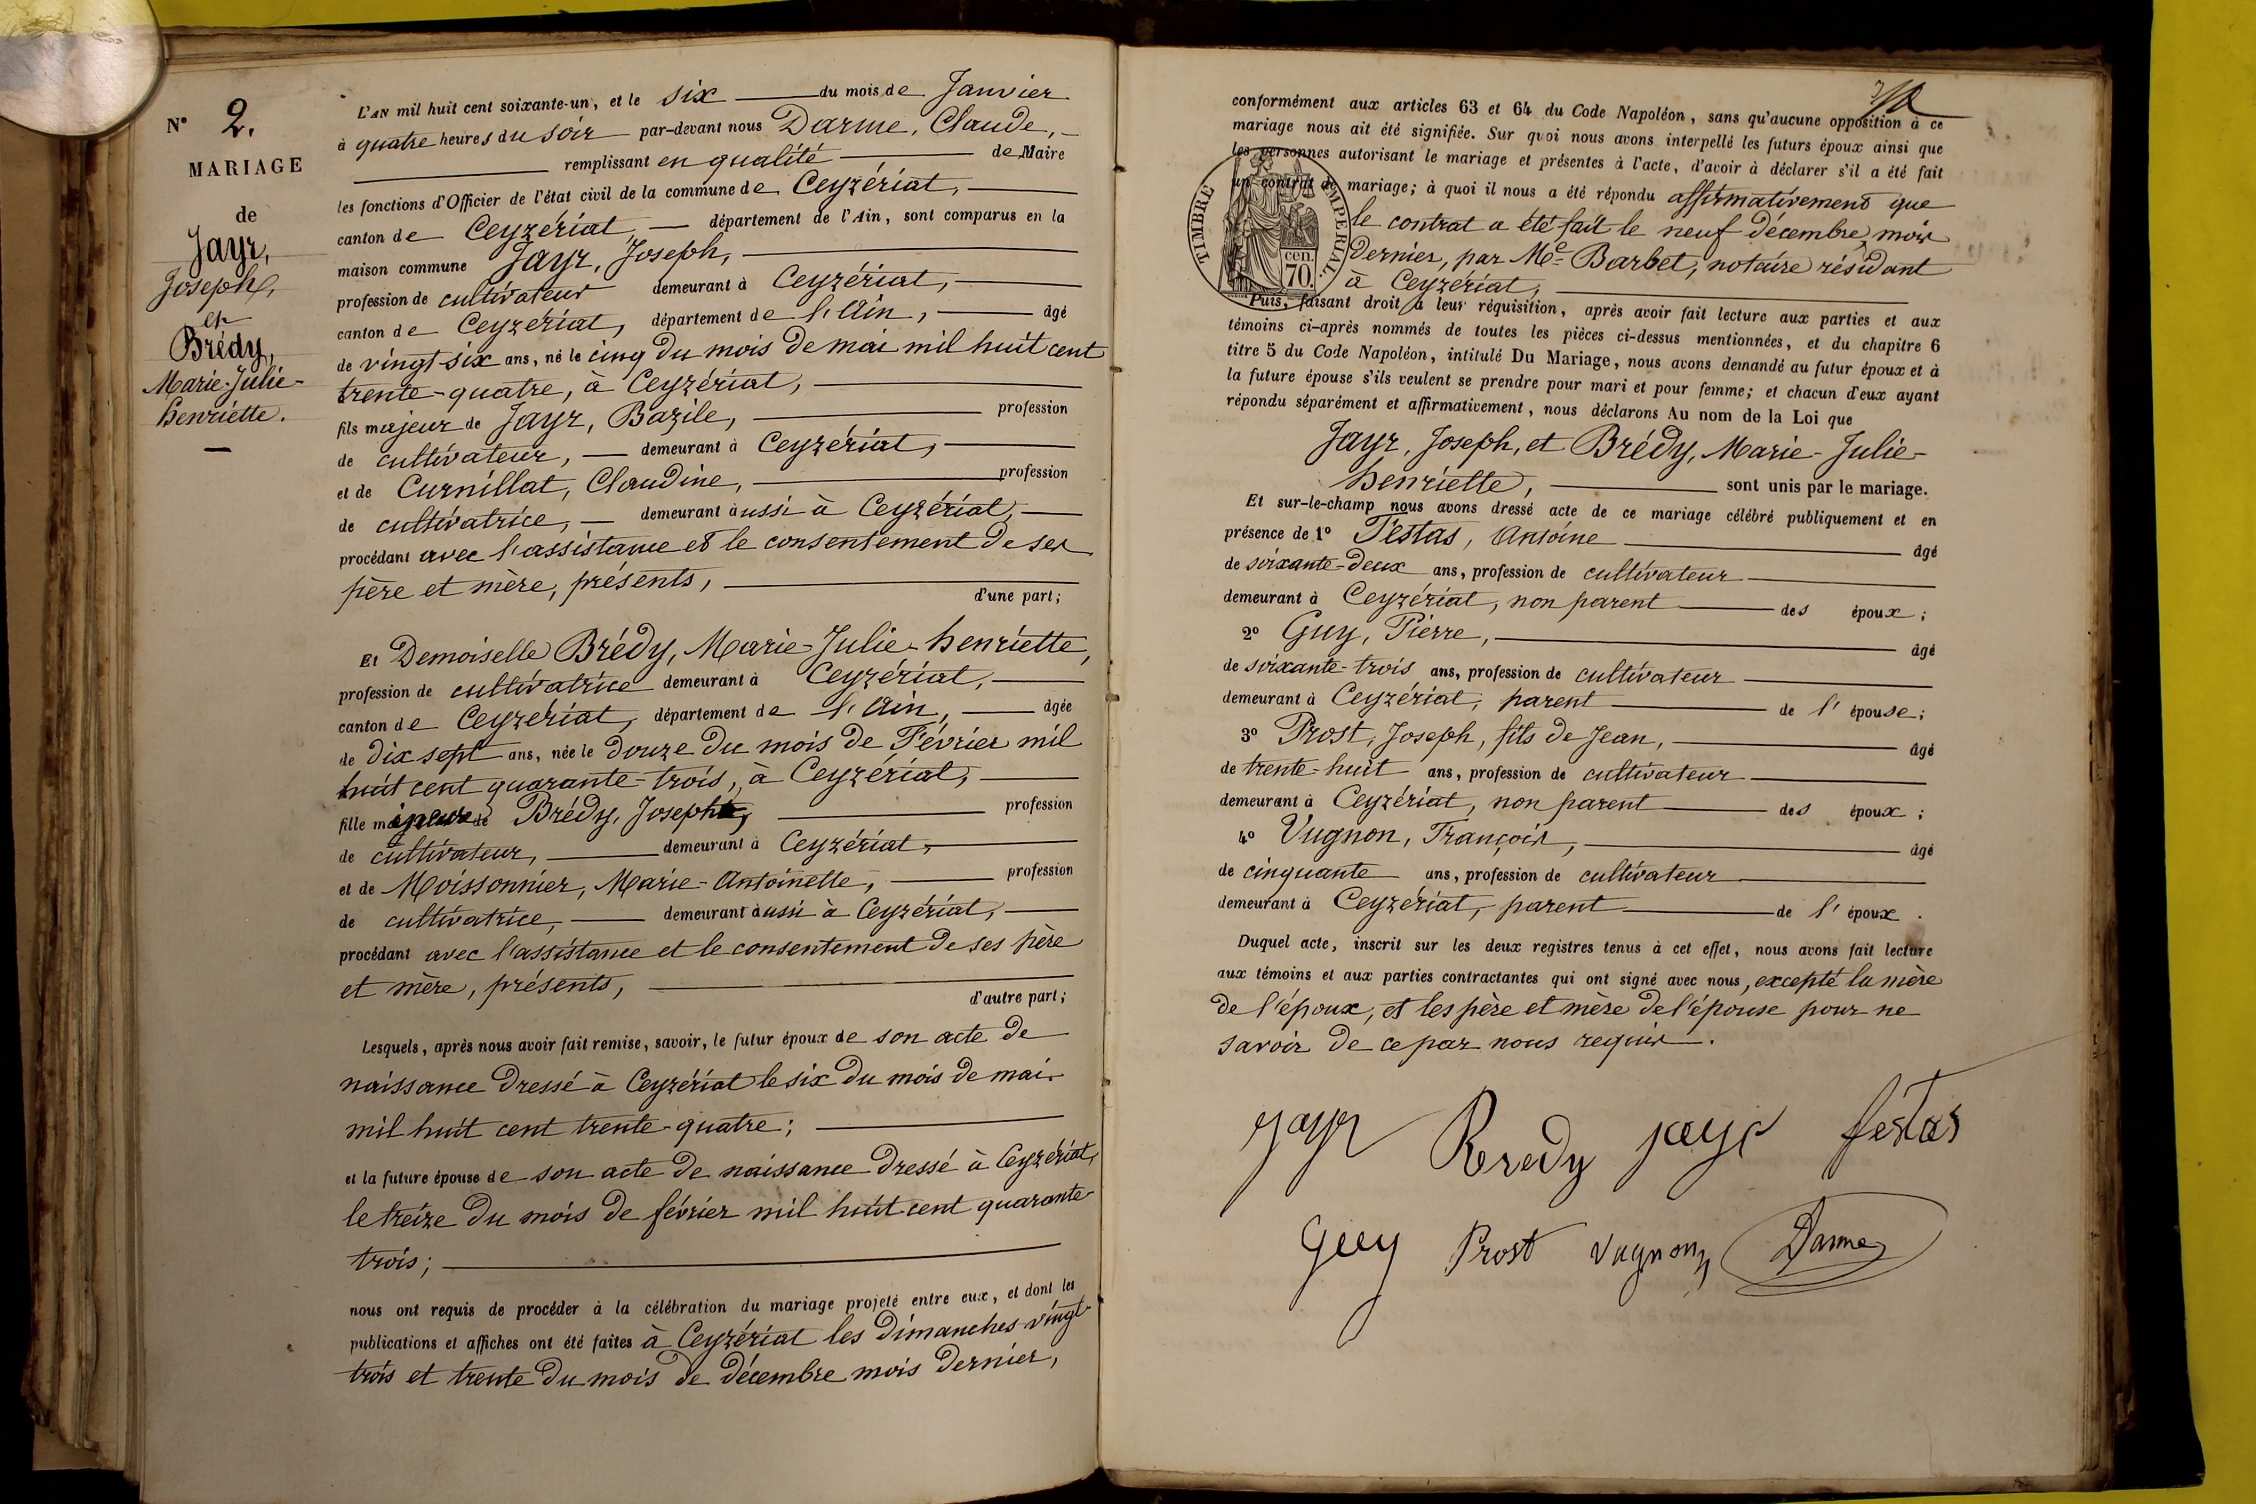 N° 2.
MARIAGE
de
Jayr,
Joseph,
et
Brédy,
Marie-Julie-
henriette.
L'AN mil huit cent soixante-un, et le six du mois de Janvier
à quatre heures du soir par-devant nous Darme, Claude,
remplissant en qualité de Maire
les fonctions d'Officier de l'état civil de la commune de Ceyzériat,
canton de Ceyzériat, département de l'Ain, sont comparus en la
maison commune Jayr, Joseph,
profession de cultivateur demeurant à Ceyzériat,
canton de Ceyzériat, département de l'Ain, âgé
de vingt-six ans, né le cinq du mois de mai mil huit cent
trente-quatre, à Ceyzériat,
fils majeur de Jayr, Bazile, profession
de cultivateur, demeurant à Ceyzériat,
et de Curnillat, Claudine, profession
de cultivatrice, demeurant aussi à Ceyzériat,
procédant avec l'assistance et le consentement de ses
père et mère, présents,
d'une part;
Et Demoiselle Brédy, Marie-Julie-henriette,
profession de cultivatrice demeurant à Ceyzériat,
canton de Ceyzériat, département de l'Ain, âgée
de dix sept ans, née le douze du mois de Février mil
huit cent quarante-trois, à Ceyzériat,
fille mineure de Brédy, Joseph, profession
de cultivateur, demeurant à Ceyzériat,
et de Moissonnier, Marie-Antoinette, profession
de cultivatrice, demeurant aussi à Ceyzériat,
procédant avec l'assistance et le consentement de ses père
et mère, présents,
d'autre part;
Lesquels, après nous avoir fait remise, savoir, le futur époux de son acte de
naissance dressé à Ceyzériat le six du mois de mai
mil huit cent trente-quatre;
et la future épouse de son acte de naissance dressé à Ceyzériat,
le treize du mois de février mil huit cent quarante-
trois;
nous ont requis de procéder à la célébration du mariage projeté entre eux, et dont les
publications et affiches ont été faites à Ceyzériat les dimanches vingt-
trois et trente du mois de décembre mois dernier,
conformément aux articles 63 et 64 du Code Napoléon, sans qu'aucune opposition à ce
mariage nous ait été signifiée. Sur quoi nous avons interpellé les futurs époux ainsi que
les personnes autorisant le mariage et présentes à l'acte, d'avoir à déclarer s'il a été fait
un contrat de mariage; à quoi il nous a été répondu affirmativement que
le contrat a été fait le neuf décembre, mois
dernier, par Me Barbet, notaire résidant
à Ceyzériat,
TIMBRE IMPERIAL.
cen.
70.
Puis, faisant droit à leur réquisition, après avoir fait lecture aux parties et aux
témoins ci-après nommés de toutes les pièces ci-dessus mentionnées, et du chapitre 6
titre 5 du Code Napoléon, intitulé Du Mariage, nous avons demandé au futur époux et à
la future épouse s'ils veulent se prendre pour mari et pour femme; et chacun d'eux ayant
répondu séparément et affirmativement, nous déclarons Au nom de la Loi que
Jayr, Joseph, et Brédy, Marie-Julie-
henriette, sont unis par le mariage.
Et sur-le-champ nous avons dressé acte de ce mariage célébré publiquement et en
présence de 1° Testas, Antoine âgé
de soixante-deux ans, profession de cultivateur
demeurant à Ceyzériat, non parent des époux;
2° Guy, Pierre, âgé
de soixante-trois ans, profession de cultivateur
demeurant à Ceyzériat, parent de l'épouse;
3° Prost, Joseph, fils de Jean, âgé
de trente-huit ans, profession de cultivateur
demeurant à Ceyzériat, non parent des époux;
4° Vugnon, François, âgé
de cinquante ans, profession de cultivateur
demeurant à Ceyzériat, parent de l'époux.
Duquel acte, inscrit sur les deux registres tenus à cet effet, nous avons fait lecture
aux témoins et aux parties contractantes qui ont signé avec nous, excepté la mère
de l'époux, et les père et mère de l'épouse pour ne
savoir de ce par nous requis.
Jayr Bredy jayr testas
Guy Prost Vugnon Darme